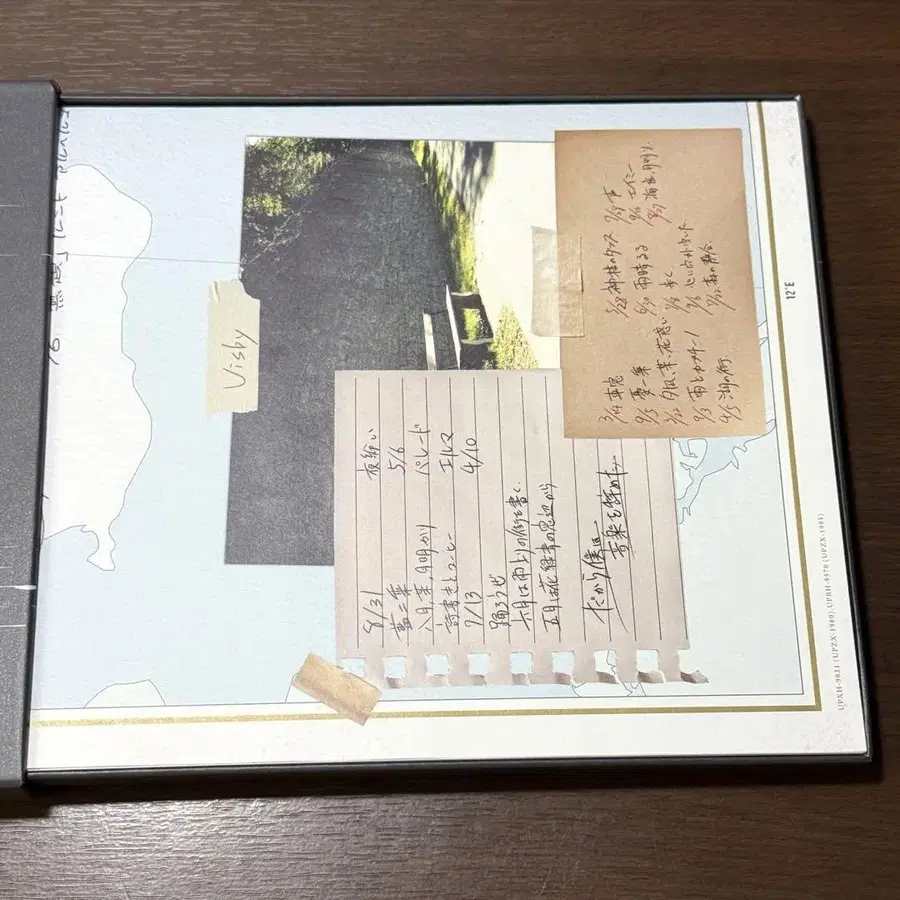 Visby
8/31 夜紛い
藍二乗 5/6
八月、某、月明かり パレード
詩書きとコーヒー エルマ
7/13 4/10
踊ろうぜ
六月は雨上りの街を書く
五月は花緑青の窓辺から
だから僕は
音楽を辞めた
3/14 車窓 5/28 神様のダンス 7/29 声
9/5 憂一乗 6/20 雨晴るる 9/6 エイミー
3/22 夕凪、某、花惑い 7/9 歩く 9/27 海底、月明り
9/3 雨とカプチーノ 7/6 心に穴が空いた
4/5 湖の街 7/12 森の教会
12°E
UPXH-9031 (UPZX-1980), UPBH-9370 (UPZX-1981)